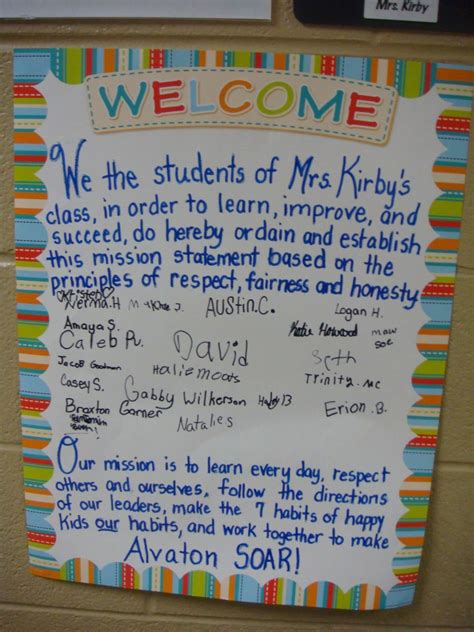 Mrs. Kirby
WELCOME
We the students of Mrs. Kirby's
class, in order to learn, improve, and
succeed, do hereby ordain and establish
this mission statement based on the
principles of respect, fairness and honesty.
Nerma.H J. AUSTIN.C. Logan H.
Amaya S. Katie Howood
Caleb R. David Seth
Jacob Goodman Haliemoats Trinity. mc
Casey S. Gabby Wilkerson Erion .B.
Braxton Garner Natalie S
Our mission is to learn every day, respect
others and ourselves, follow the directions
of our leaders, make the 7 habits of happy
Kids our habits, and work together to make
Alvaton SOAR!